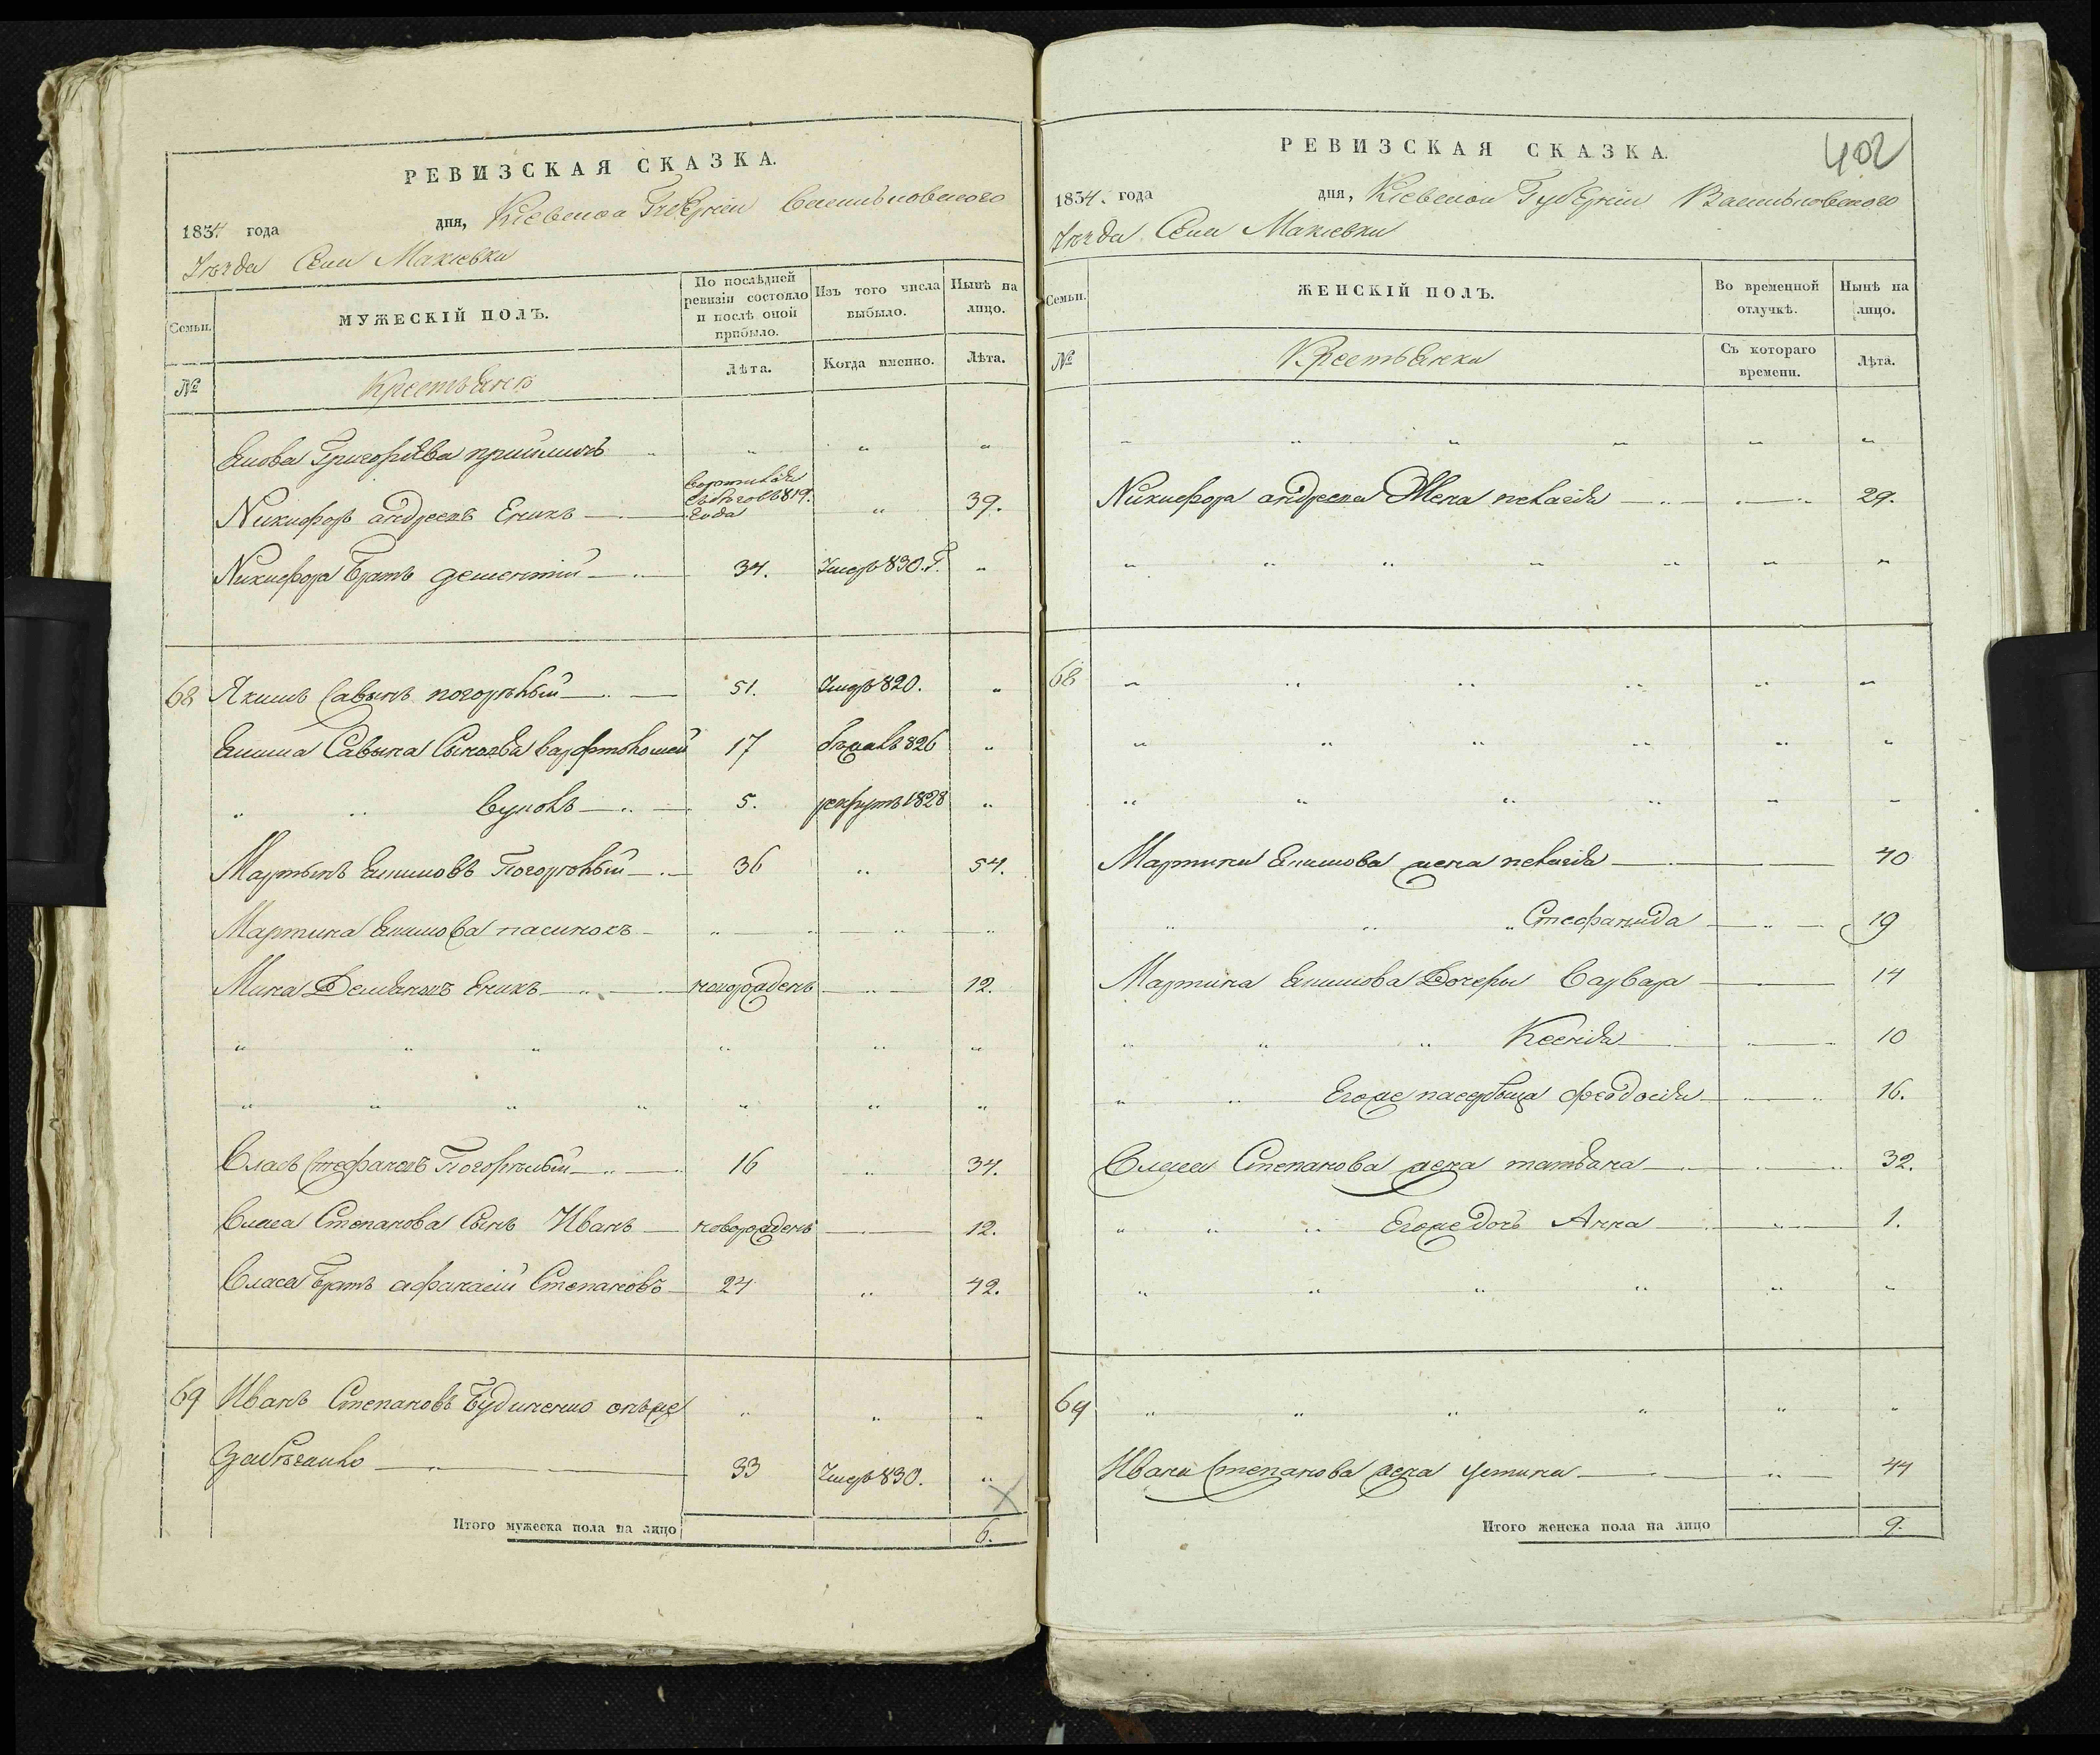 РЕВИЗСКАЯ СКАЗКА.
1834 года дня, Кіевской Губерніи Васильковского
Уѣзда Села Макіевки
Семьи. МУЖЕСКІЙ ПОЛЪ. По послѣдней ревизіи состояло и послѣ оной прибыло. Изъ того числа выбыло. Нынѣ на лицо.
№ Крестьянъ Лѣта. Когда именно. Лѣта.
Григорьева " " "
Никифоръ Андреевъ 819. года " 39.
Никифора братъ Дементій 34. Умеръ 830. Г. "
68 Якимъ Савинъ Погорѣлый 51. Умеръ 820. "
Екима Савина Сыновья Варфоломей 17 бѣжалъ 826 "
" " Вуколъ 5. рекрутъ 1828 "
Мартынъ Екимовъ Погорѣлый 36 " 54.
Мартина Екимова пасинокъ " " " "
Мина Демьяновъ новорожденъ " 12.
" " " " " "
" " " " " " "
Власъ Стефановъ Погорѣлый 16 " 34.
Власа Степанова Сынъ Иванъ новорожденъ 12.
Власа братъ Афанасій Степановъ 24 " 42.
69 Иванъ Степановъ Будиченко онъ же " " "
33 Умеръ 830. "
Итого мужеска пола на лицо 6.
402
РЕВИЗСКАЯ СКАЗКА.
1834. года дня, Кіевской Губерніи Васильковского
Уѣзда Села Макіевки
Семьи. ЖЕНСКІЙ ПОЛЪ. Во временной отлучкѣ. Нынѣ на лицо.
№ Крестьянки Съ котораго времени. Лѣта.
" " " " " "
Никифора Андреева Жена Пелагія " 29.
" " " " " " "
68 " " " " " "
" " " " " "
" " " " " "
Мартина Екимова жена Пелагія 40
" " " Стефанида " 19
Мартина Екимова Дочери Варвара 14
" " " Ксенія " 10
" " Егоже пасербица Феодосія " 16.
Власа Степанова жена Татьяна " 32.
" " " Егоже дочь Анна " 1.
" " " " " "
69 " " " " " "
Ивана Степанова жена Устина " 44
Итого женска пола на лицо 9.